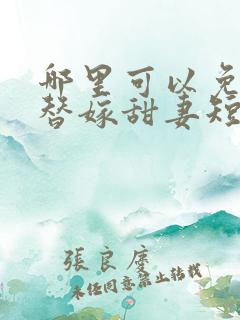 哪里可以免
替嫁甜妻短
張良
未经同意禁止转载